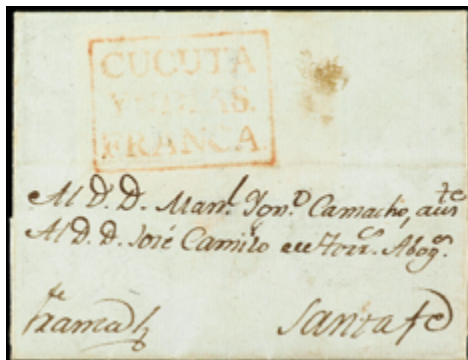 CUCUTA
YNDIAS.
FRANCA
Al D.D. Man.l Ygn.o Camacho, aus.te
Al D. D. José Camilo de Torr.s Abog.o
Santafe